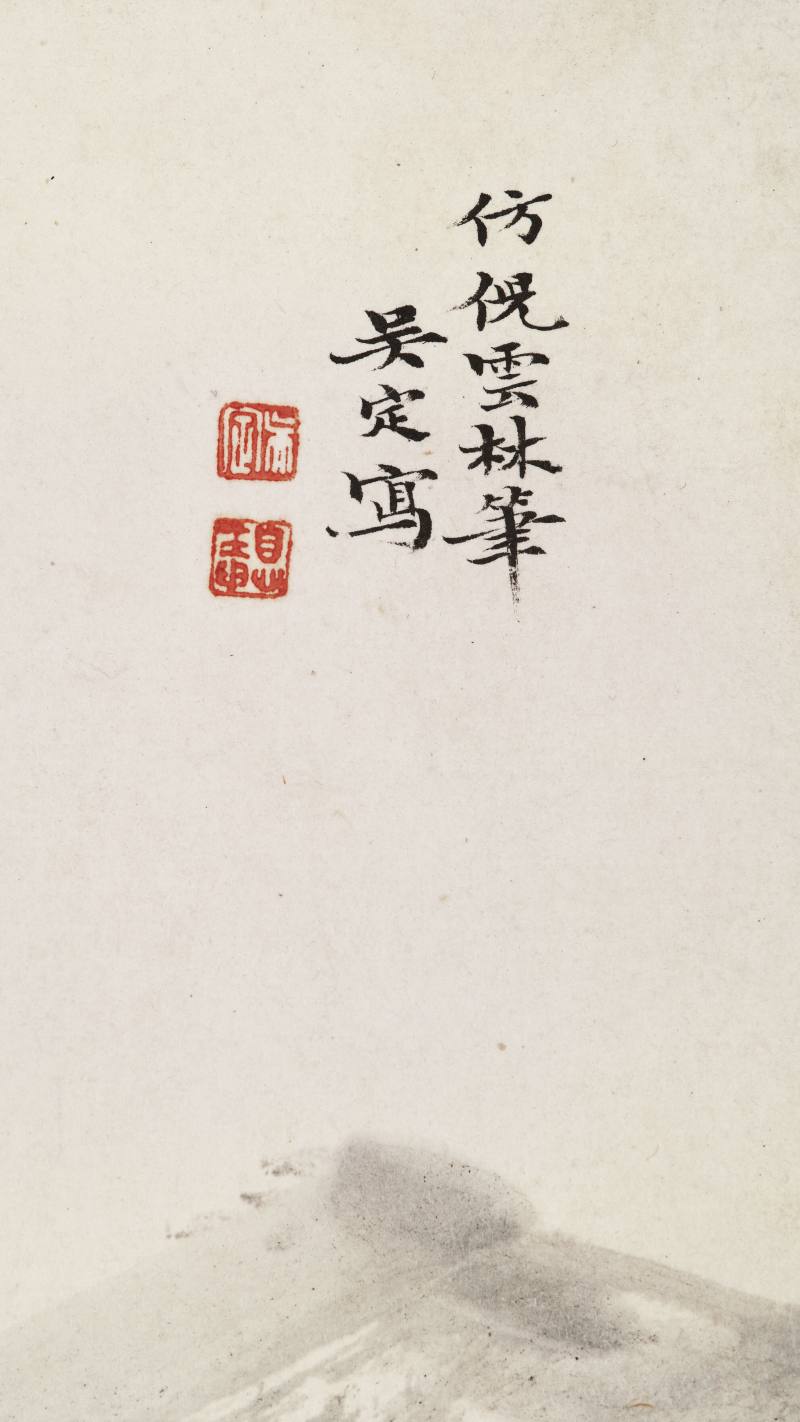 仿倪雲林筆
吴定寫